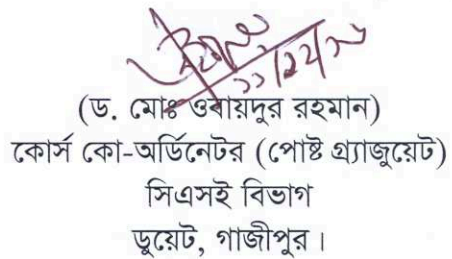 (ড. মোঃ ওবায়দুর রহমান)
কোর্স কো-অর্ডিনেটর (পোষ্ট গ্র্যাজুয়েট)
সিএসই বিভাগ
ডুয়েট, গাজীপুর।